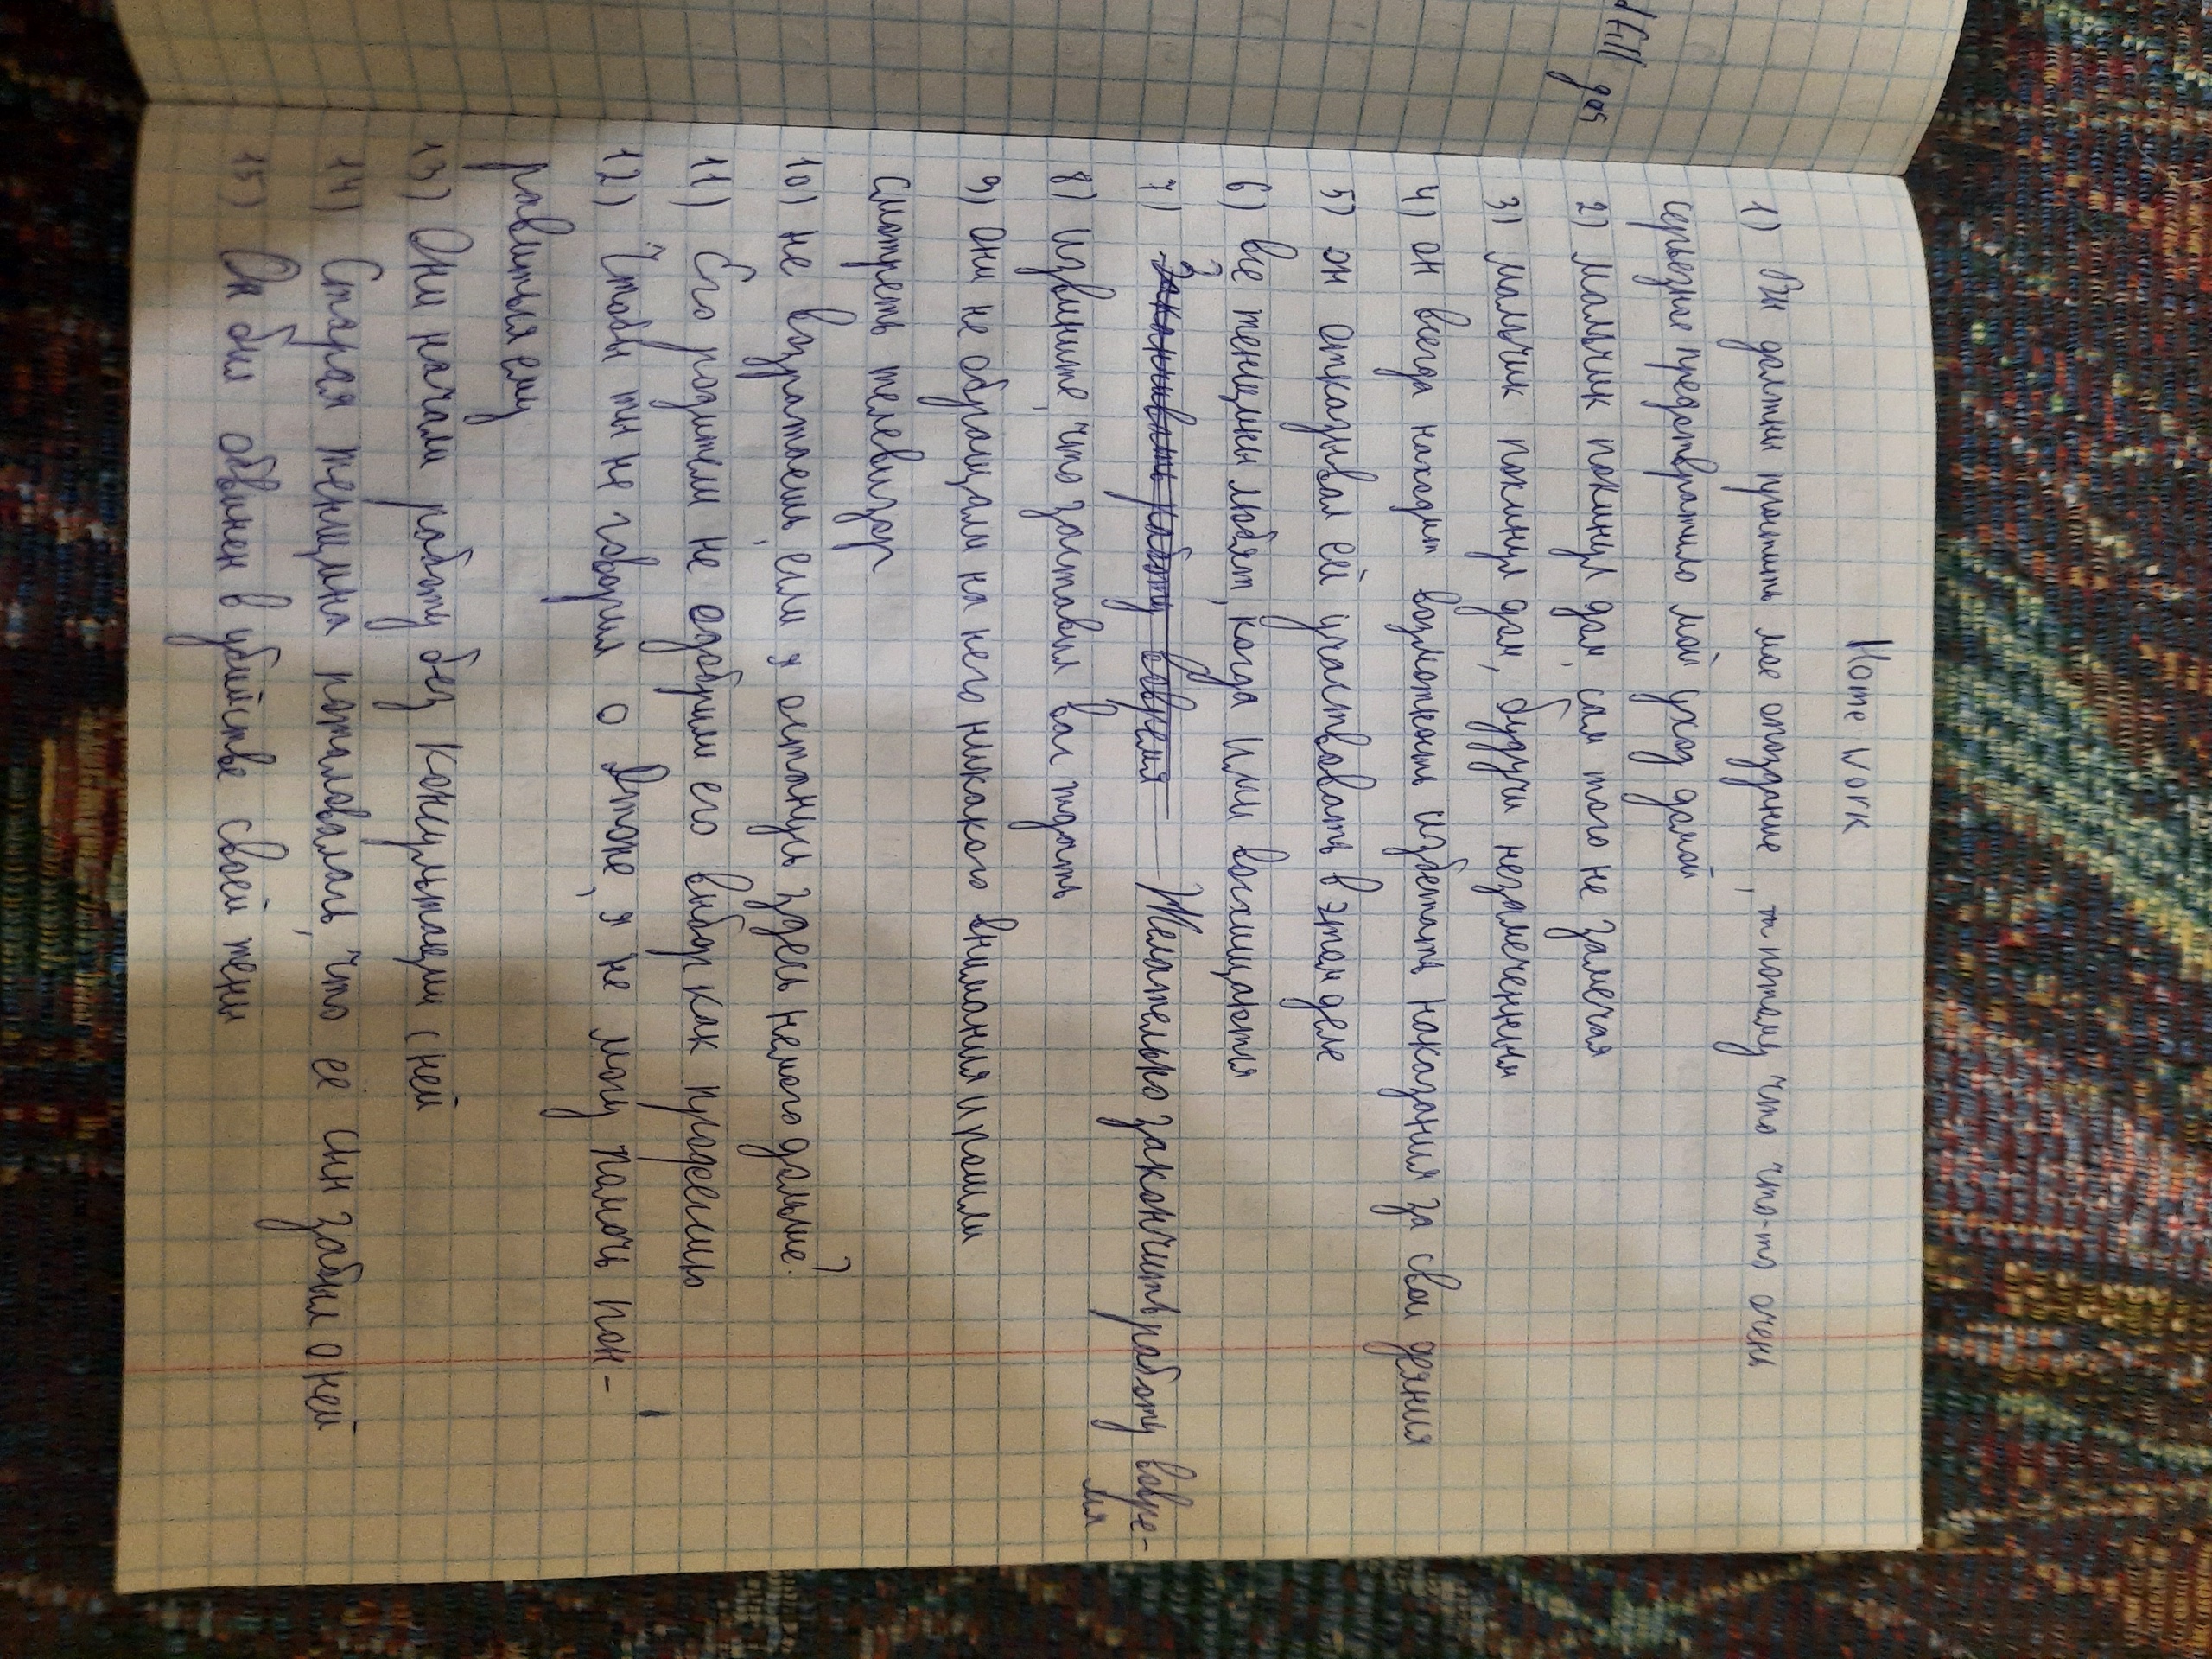 Home work
1) Вы должны простить мое опоздание, потому что что-то очень
серьезное предотвратило мой уход домой
2) мальчик покинул дом, сам того не замечая
3) мальчик покинул дом, будучи незамеченным
4) он всегда находит возможность избежать наказания за свои деяния
5) он отказывал ей участвовать в этом деле
6) все женщины любят, когда ими восхищаются
7) Желательно закончить работу вовре-
мя
8) Извините, что заставил вас ждать
9) они не обращали на него никакого внимания и пошли
смотреть телевизор
10) не возражаешь, если я останусь здесь немого дольше?
11) Его родители не одобрили его выбор как профессию
12) Чтобы ты не говорил о Антоне, я не могу помочь пон-
равиться ему
13) Они начали работу без консультации с ней
14) Старая женщина пожаловалась, что её сын забыл о ней
15) Он был обвинен в убийстве своей жены